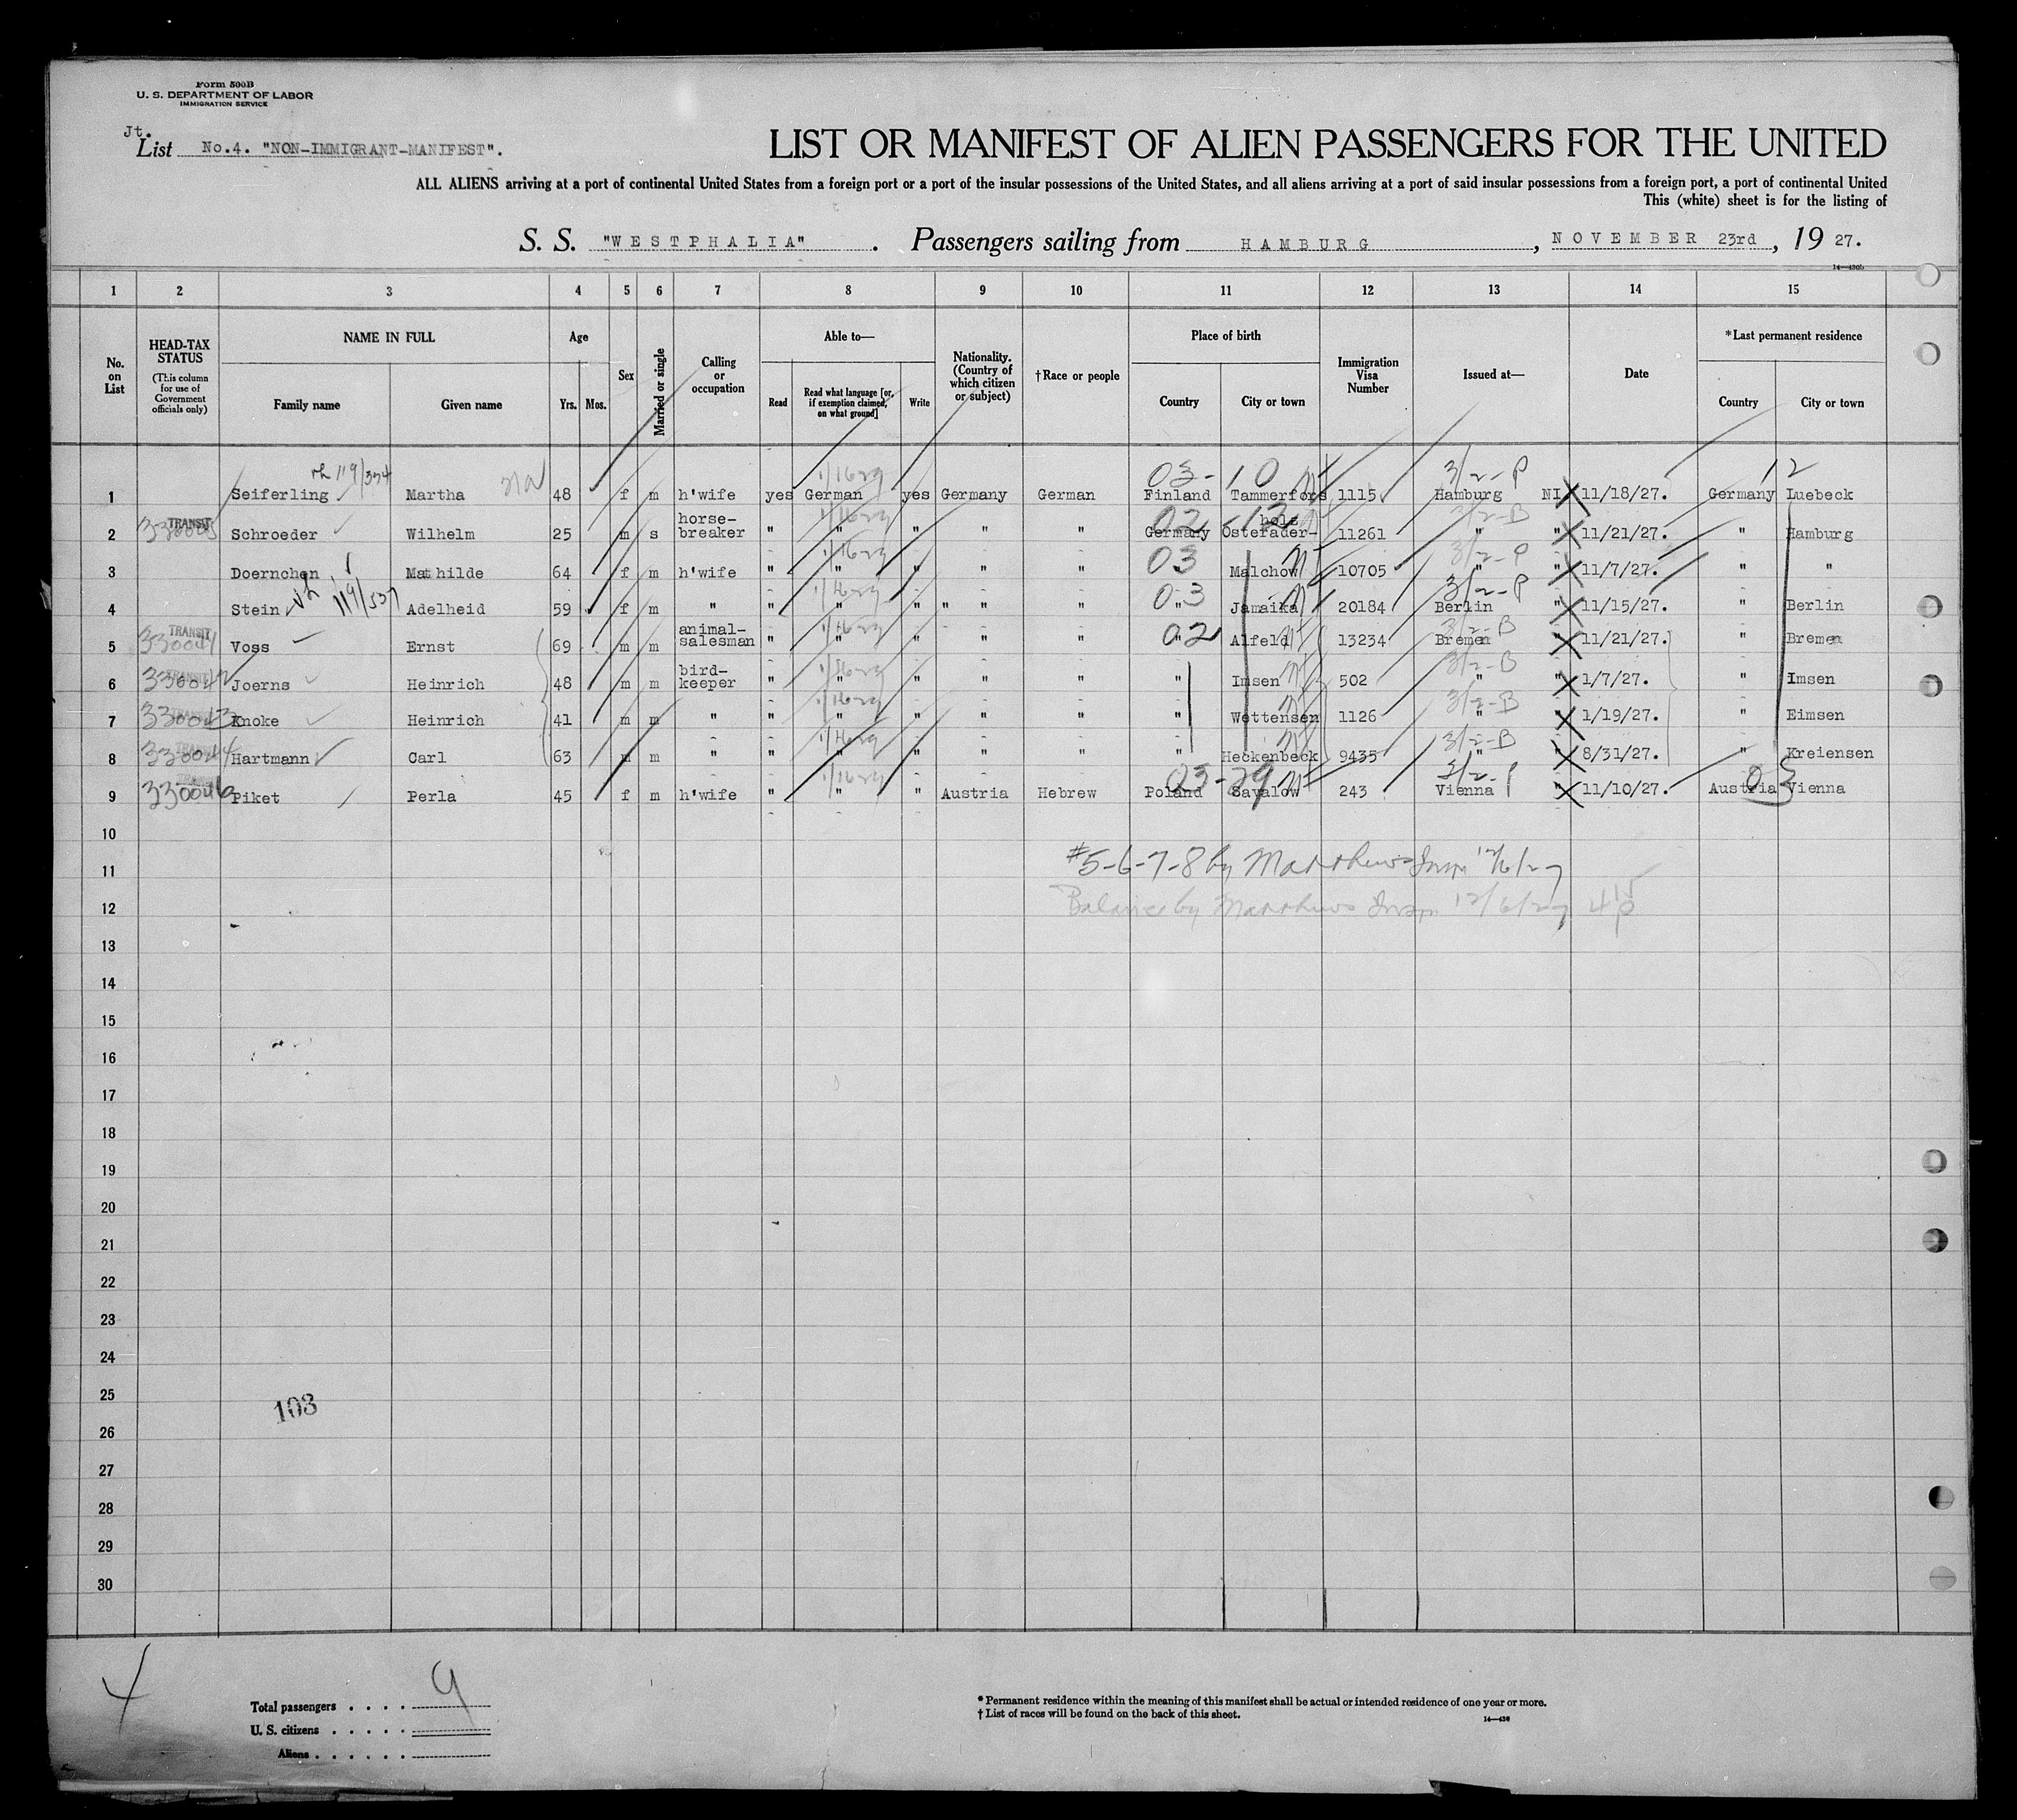 Form 500B
U. S. DEPARTMENT OF LABOR
IMMIGRATION SERVICE
Jt.
List No.4. "NON-IMMIGRANT-MANIFEST".
LIST OR MANIFEST OF ALIEN PASSENGERS FOR THE UNITED
ALL ALIENS arriving at a port of continental United States from a foreign port or a port of the insular possessions of the United States, and all aliens arriving at a port of said insular possessions from a foreign port, a port of continental United
This (white) sheet is for the listing of
S. S. "WESTPHALIA". Passengers sailing from HAMBURG, NOVEMBER 23rd, 1927.
1 2 3 4 5 6 7 8 9 10 11 12 13 14 15
No. on List
HEAD-TAX STATUS (This column for use of Government officials only)
NAME IN FULL
Family name Given name
Age
Yrs. Mos.
Sex
Married or single
Calling or occupation
Able to—
Read
Read what language [or, if exemption claimed, on what ground]
Write
Nationality. (Country of which citizen or subject)
†Race or people
Place of birth
Country City or town
Immigration Visa Number
Issued at—
Date
*Last permanent residence
Country City or town
119/334 03-10 3/2-P 12
1 Seiferling Martha 48 f m h'wife yes German yes Germany German Finland Tammerfors 1115 Hamburg NI 11/18/27. Germany Luebeck
330045 TRANSIT 02-13 3/2-B
2 Schroeder Wilhelm 25 m s horse-breaker " " " " " Germany Osterader-holz 11261 " " 11/21/27. " Hamburg
03 3/2-P
3 Doernchen Mathilde 64 f m h'wife " " " " " " Malchow 10705 " " 11/7/27. " "
119/537 03 3/2-P
4 Stein Adelheid 59 f m " " " " " " " " Jamaika 20184 Berlin " 11/15/27. " Berlin
330041 TRANSIT 02 3/2-B
5 Voss Ernst 69 m m animal-salesman " " " " " " Alfeld 13234 Bremen " 11/21/27. " Bremen
330042 TRANSIT 3/2-B
6 Joerns Heinrich 48 m m bird-keeper " " " " " " Imsen 502 " " 1/7/27. " Imsen
330043 TRANSIT 3/2-B
7 Knoke Heinrich 41 m m " " " " " " " Wettensen 1126 " " 1/19/27. " Eimsen
330044 TRANSIT 3/2-B
8 Hartmann Carl 63 m m " " " " " " " Heckenbeck 9435 " " 8/31/27. " Kreiensen
330046 TRANSIT 03-29 3/2-P 03
9 Piket Perla 45 f m h'wife " " " Austria Hebrew Poland Savalow 243 Vienna " 11/10/27. Austria Vienna
10
11 #5-6-7-8 by Matthews Insp 12/6/27
12 Balance by Matthews Insp 12/6/27
13
14
15
16
17
18
19
20
21
22
23
24
25
103
26
27
28
29
30
4
Total passengers . . . . 9
U. S. citizens . . . . .
Aliens . . . . . .
* Permanent residence within the meaning of this manifest shall be actual or intended residence of one year or more.
† List of races will be found on the back of this sheet.